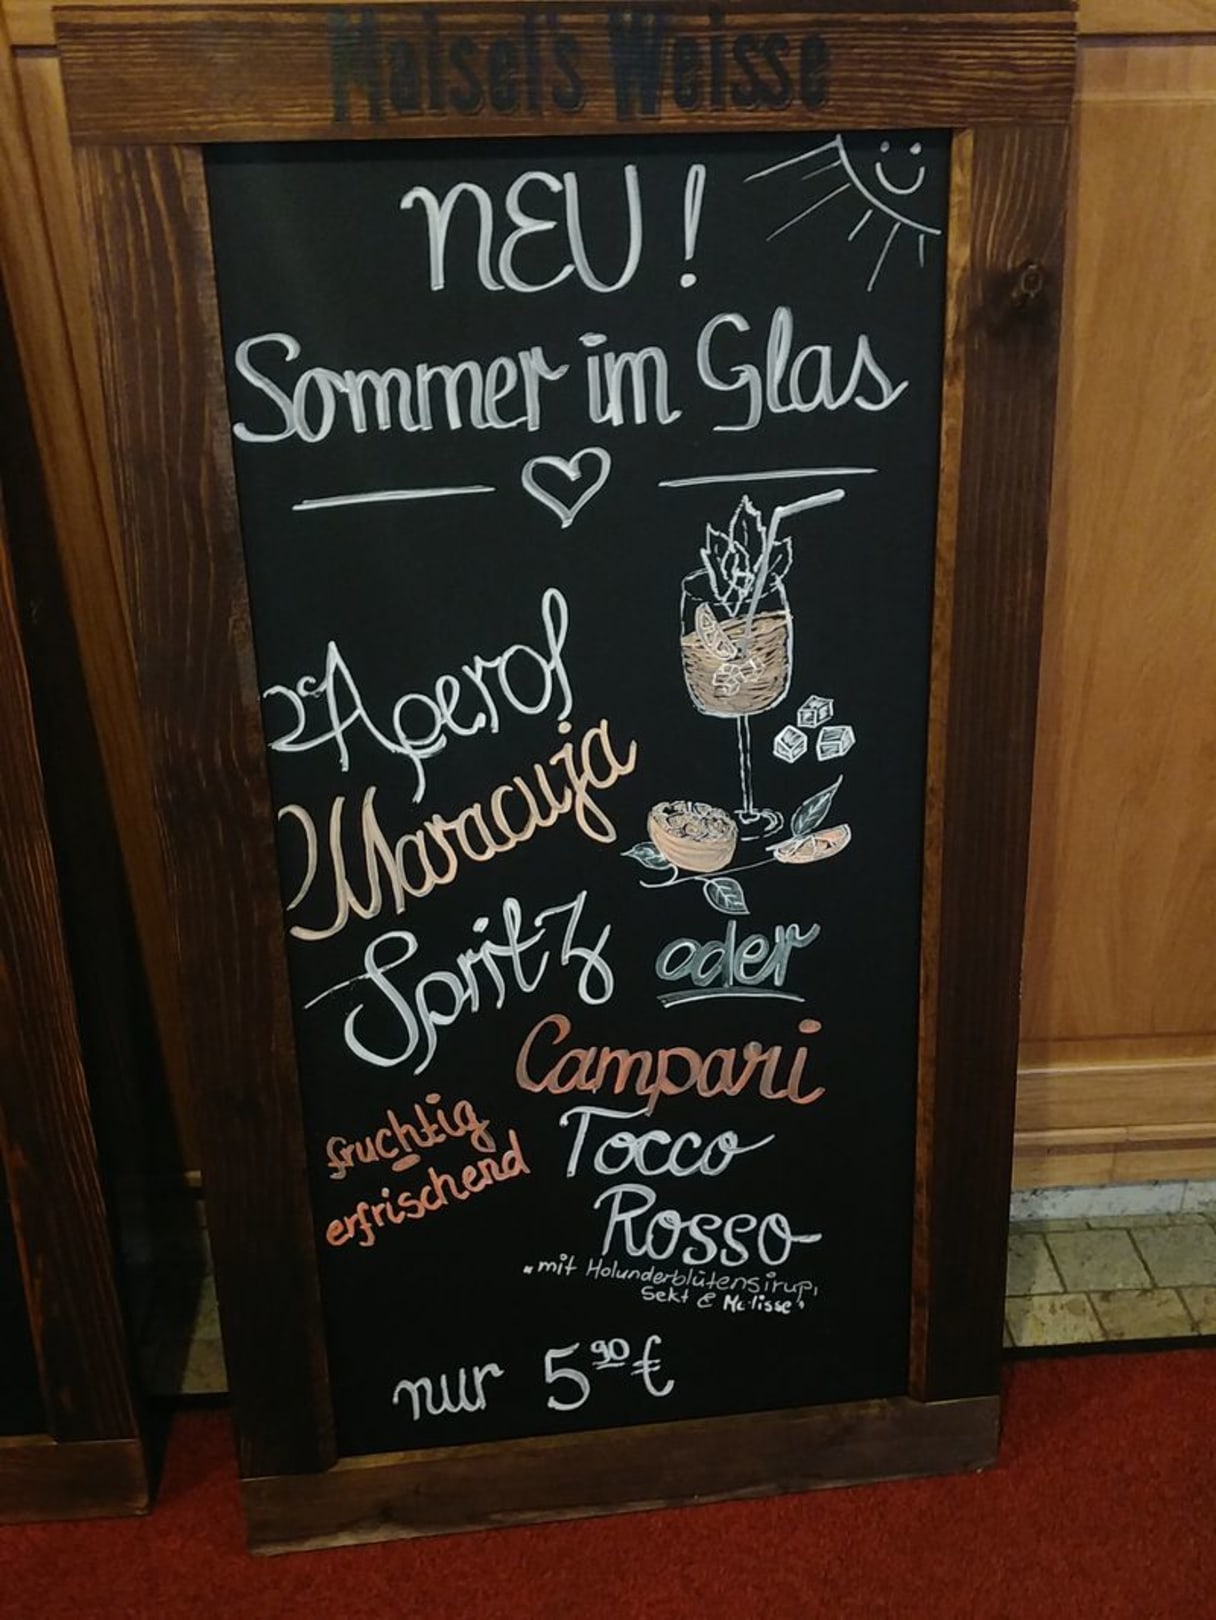 Maisel's Weisse
NEU!
Sommer im Glas
Aperol
Maracuja
Spritz oder
Campari
Tocco
Rosso
fruchtig
erfrischend
"mit Holunderblütensirup,
Sekt & Melisse"
nur 5 90 €